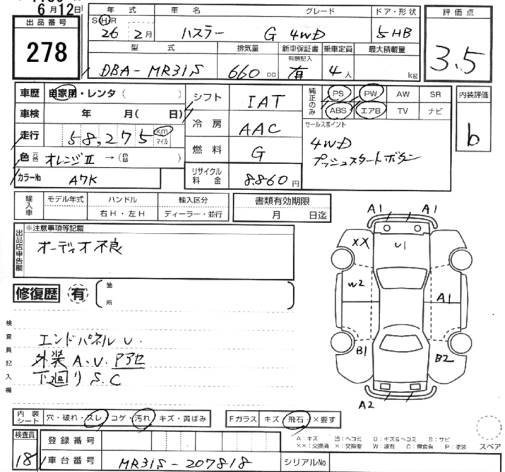 6月12日
出品番号
278
年式 車名 グレード ドア・形状
SHR 26 2月 ハスラー G 4WD 5HB
評価点
3.5
型式 排気量 新車保証書 乗車定員 最大積載量
有無記入
DBA-MR31S 660 cc 有 4人 kg
車歴 自家用・レンタ( )
車検 年 月( 日)
走行 58,275 km マイル
色 元色 オレンジⅡ →(替色 )
カラーNo A7K
シフト IAT
冷房 AAC
燃料 G
リサイクル料金 8,860円
純正のみ
PS PW AW SR
ABS エアB TV ナビ
セールスポイント
4WD
プッシュスタートボタン
内装評価
b
輸入車 モデル年式 ハンドル 輸入区分
年 右H・左H ディーラー・並行
書類有効期限
月 日迄
出品店申告欄
※注意事項等記載
オーディオ不良
修復歴 有 箇所
検査員記入欄
エンドパネルU.
外装A.U.
下廻りS.C
A1 A1
XX U1
W2 A1
B1 B2
A2
内装シート 穴・破れ・スレ コゲ・汚れ キズ・黄ばみ
Fガラス キズ 飛石 ×要す
A:キズ U:ヘコミ B:キズ&ヘコミ S:サビ
スペア
検査員
18
登録番号
車台番号 MR31S-207818
シリアルNo